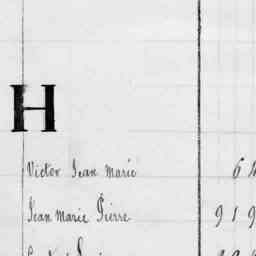 H
Victor Jean Marie 6
Jean Marie Pierre 919